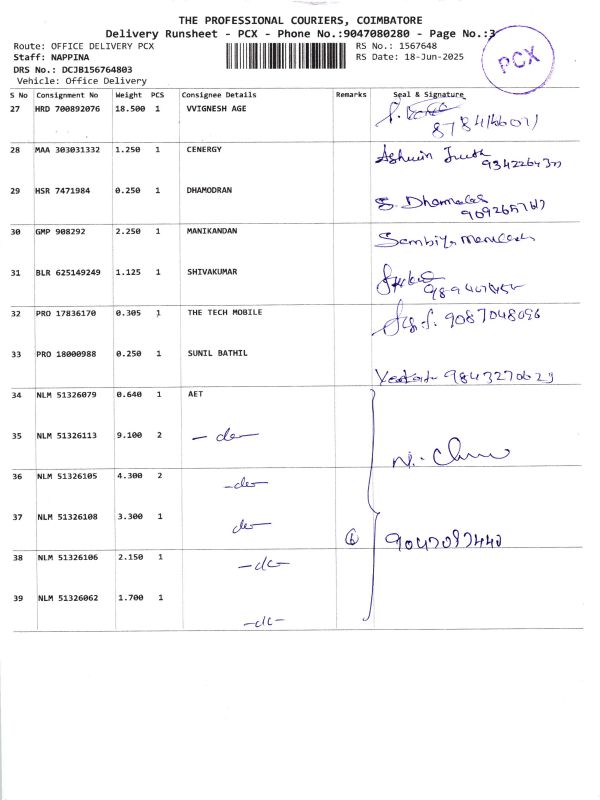 THE PROFESSIONAL COURIERS, COIMBATORE
Delivery Runsheet - PCX - Phone No.:9047080280 - Page No.:3
Route: OFFICE DELIVERY PCX RS No.: 1567648
Staff: NAPPINA RS Date: 18-Jun-2025
DRS No.: DCJB156764803
Vehicle: Office Delivery
PCX
S No Consignment No Weight PCS Consignee Details Remarks Seal & Signature
27 HRD 700892076 18.500 1 VVIGNESH AGE
28 MAA 303031332 1.250 1 CENERGY
Ashwin
29 HSR 7471984 0.250 1 DHAMODRAN
30 GMP 908292 2.250 1 MANIKANDAN
31 BLR 625149249 1.125 1 SHIVAKUMAR
32 PRO 17836170 0.305 1 THE TECH MOBILE
9087048096
33 PRO 18000988 0.250 1 SUNIL BATHIL
9843270623
34 NLM 51326079 0.640 1 AET
35 NLM 51326113 9.100 2 - do -
36 NLM 51326105 4.300 2 - do -
37 NLM 51326108 3.300 1 do - 6
38 NLM 51326106 2.150 1 - do -
39 NLM 51326062 1.700 1 - do -